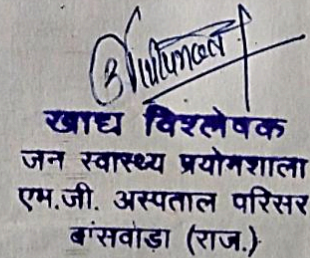 खाद्य विश्लेषक
जन स्वास्थ्य प्रयोगशाला
एम.जी. अस्पताल परिसर
बांसवाड़ा (राज.)